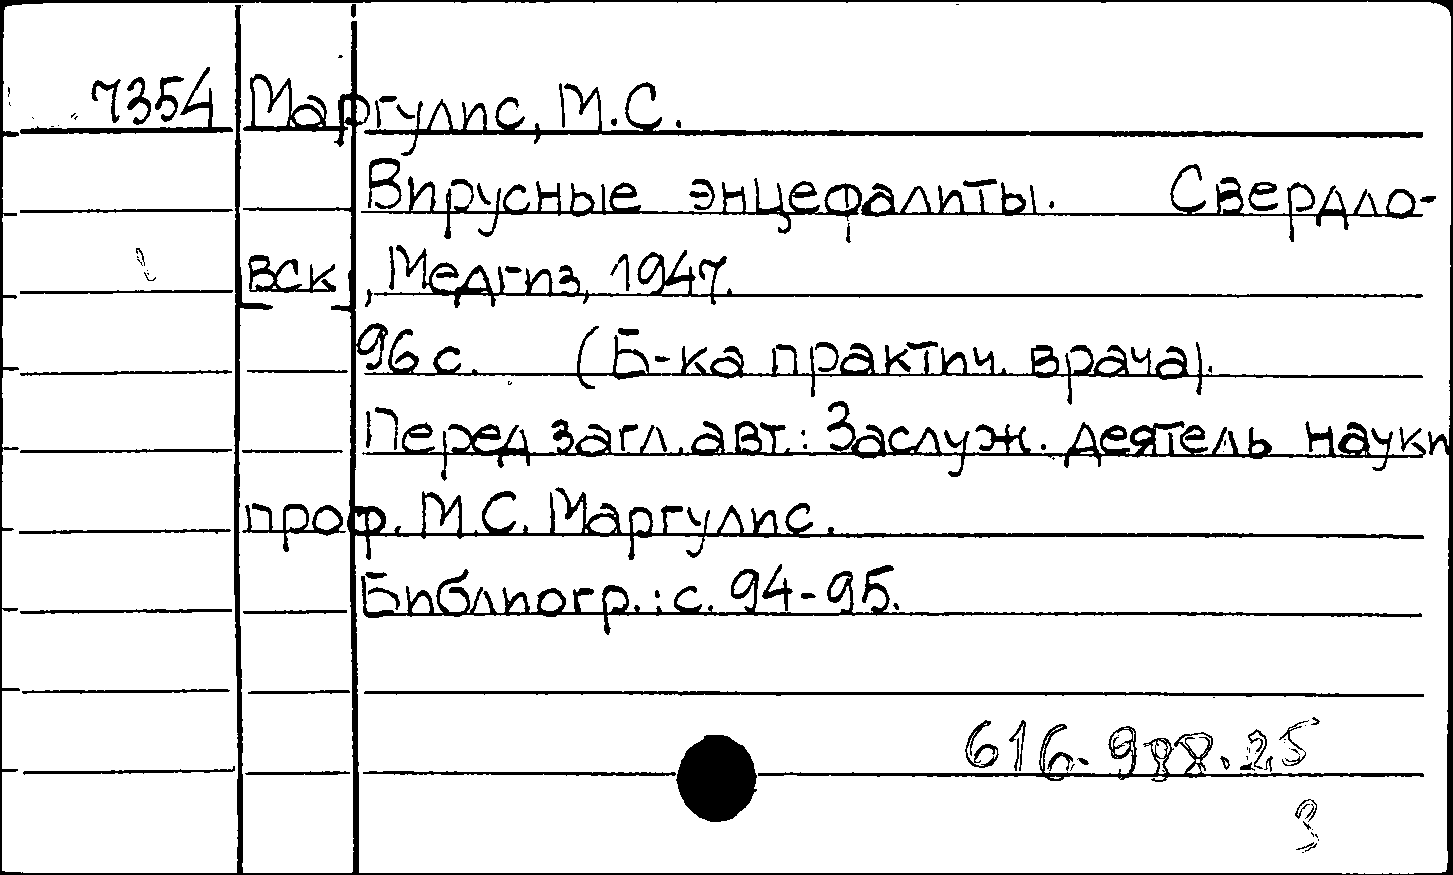 7354 Маргулис, М.С.
Вирусные энцефалиты. Свердло-
вск, Медгиз, 1947.
96 с. (Б-ка практич. врача).
Перед загл. авт.: Заслуж. деятель науки
проф. М.С. Маргулис.
Библиогр.: с. 94-95.
616.988.25
3